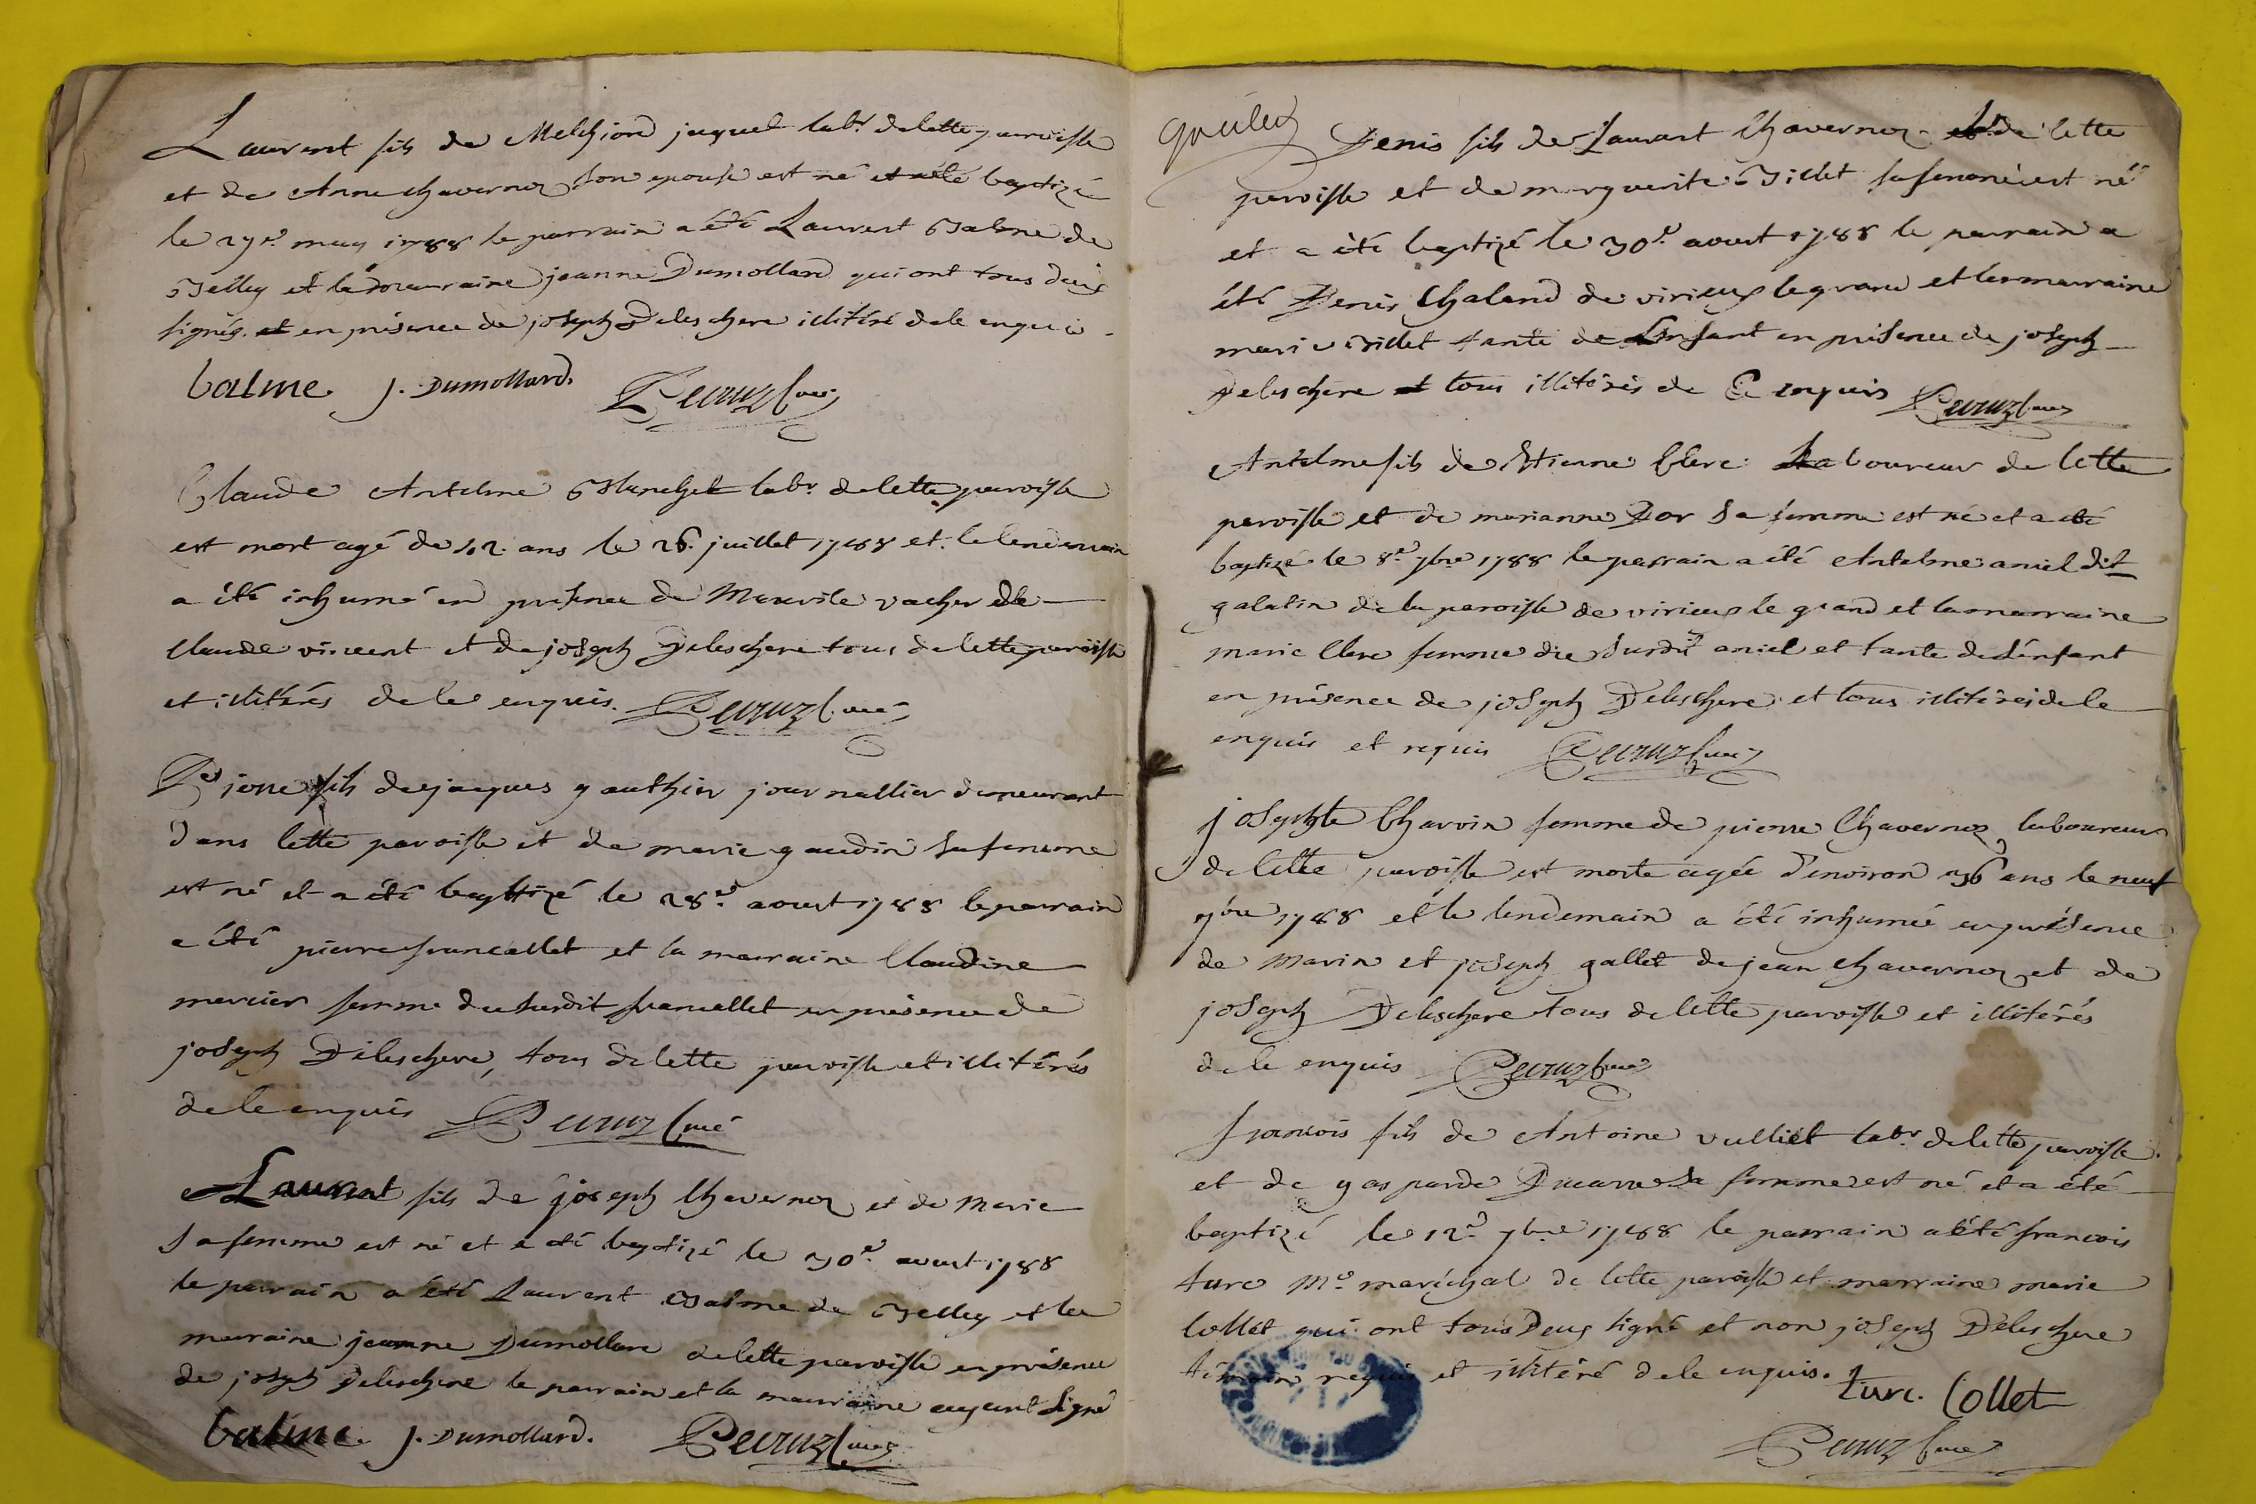 Laurent fils de Melchiord jaquet labr. de cette paroisse
et de Anne chavernoz son epouse est né et a été baptizé
le may 1788 le parrain a été Laurent Balme de
Belley et la maraine jeanne Dumollard qui ont tous deux
signés et en présence de joseph Deleschere illitéré de le enquis
balme. J. Dumollard. Decruz curé
Claude Antelme Blanchet labr. de cette paroisse
est mort agé de ans le 26. juillet 1788 et le lendemain
a été inhumé en présence de vacher de
Claude vincent et de joseph Deleschere tous de cette paroisse
et illitérés de le enquis. Decruz curé
fils de jacques gauthier journallier demeurant
dans cette paroisse et de marie gaudin sa femme
est né et a été baptizé le 28e. aoust 1788 le parrain
a été pierre francallet et la marraine Claudine
mercier femme du susdit francallet en présence de
joseph Deleschere, tous de cette paroisse et illitérés
de le enquis Decruz Curé
Laurent fils de joseph Chavernoz et de Marie
sa femme est né et a été baptizé le 30e. aoust 1788
le parrain a été Laurent Balme de Belley et la
maraine jeanne Dumollard de cette paroisse en présence
de joseph Deleschere le parrain et la marraine ayant signé
balme. J. Dumollard. Decruz Curé
Denis fils de Laurant Chavernoz de cette
paroisse et de marguerite Billet sa femme est né
et a été baptizé le 30e. aoust 1788 le parrain a
été Denis Chaland de virieux le grand et la marraine
marie Billet tante de L'enfant en présence de joseph
Deleschere tous illitérés de Ce enquis Decruz Curé
Antelme fils de Etienne Clerc Laboureur de cette
paroisse et de marianne Dor sa femme est né et a été
baptizé le 8e. 7bre 1788 le parrain a été Antelme aniel dit
galatin de la paroisse de virieux le grand et la marraine
marie Clerc femme du susdit aniel et tante de L'enfant
en présence de joseph Deleschere et tous illitérés de le
enquis et requis Decruz Curé
josephte Charvin femme de pierre Chavernoz laboureur
de cette paroisse est morte agée d'environ 36 ans le neuf
7bre 1788 et le lendemain a été inhumée en présence
de Marin et joseph gallet de jean Chavernoz et de
joseph Deleschere tous de cette paroisse et illitérés
de le enquis Decruz Curé
francois fils de Antoine vulliet labr. de cette paroisse
et de gasparde Ducarre sa femme est né et a été
baptizé le 12e. 7bre 1788 le parrain a été francois
turc Me. maréchal de cette paroisse et marraine marie
Collet qui ont tous Deux signé et non joseph Deleschere
témoin requis et illitéré de le enquis. turc. Collet
Decruz Curé